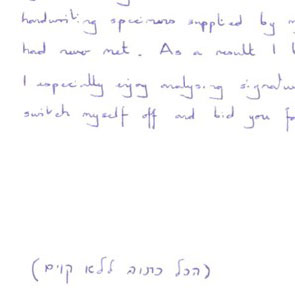 handwriting specimens supplied by
had never met. As a result I
I especially enjoy analysing
switch myself off and bid you
(הכל כתוב ללא קוים)